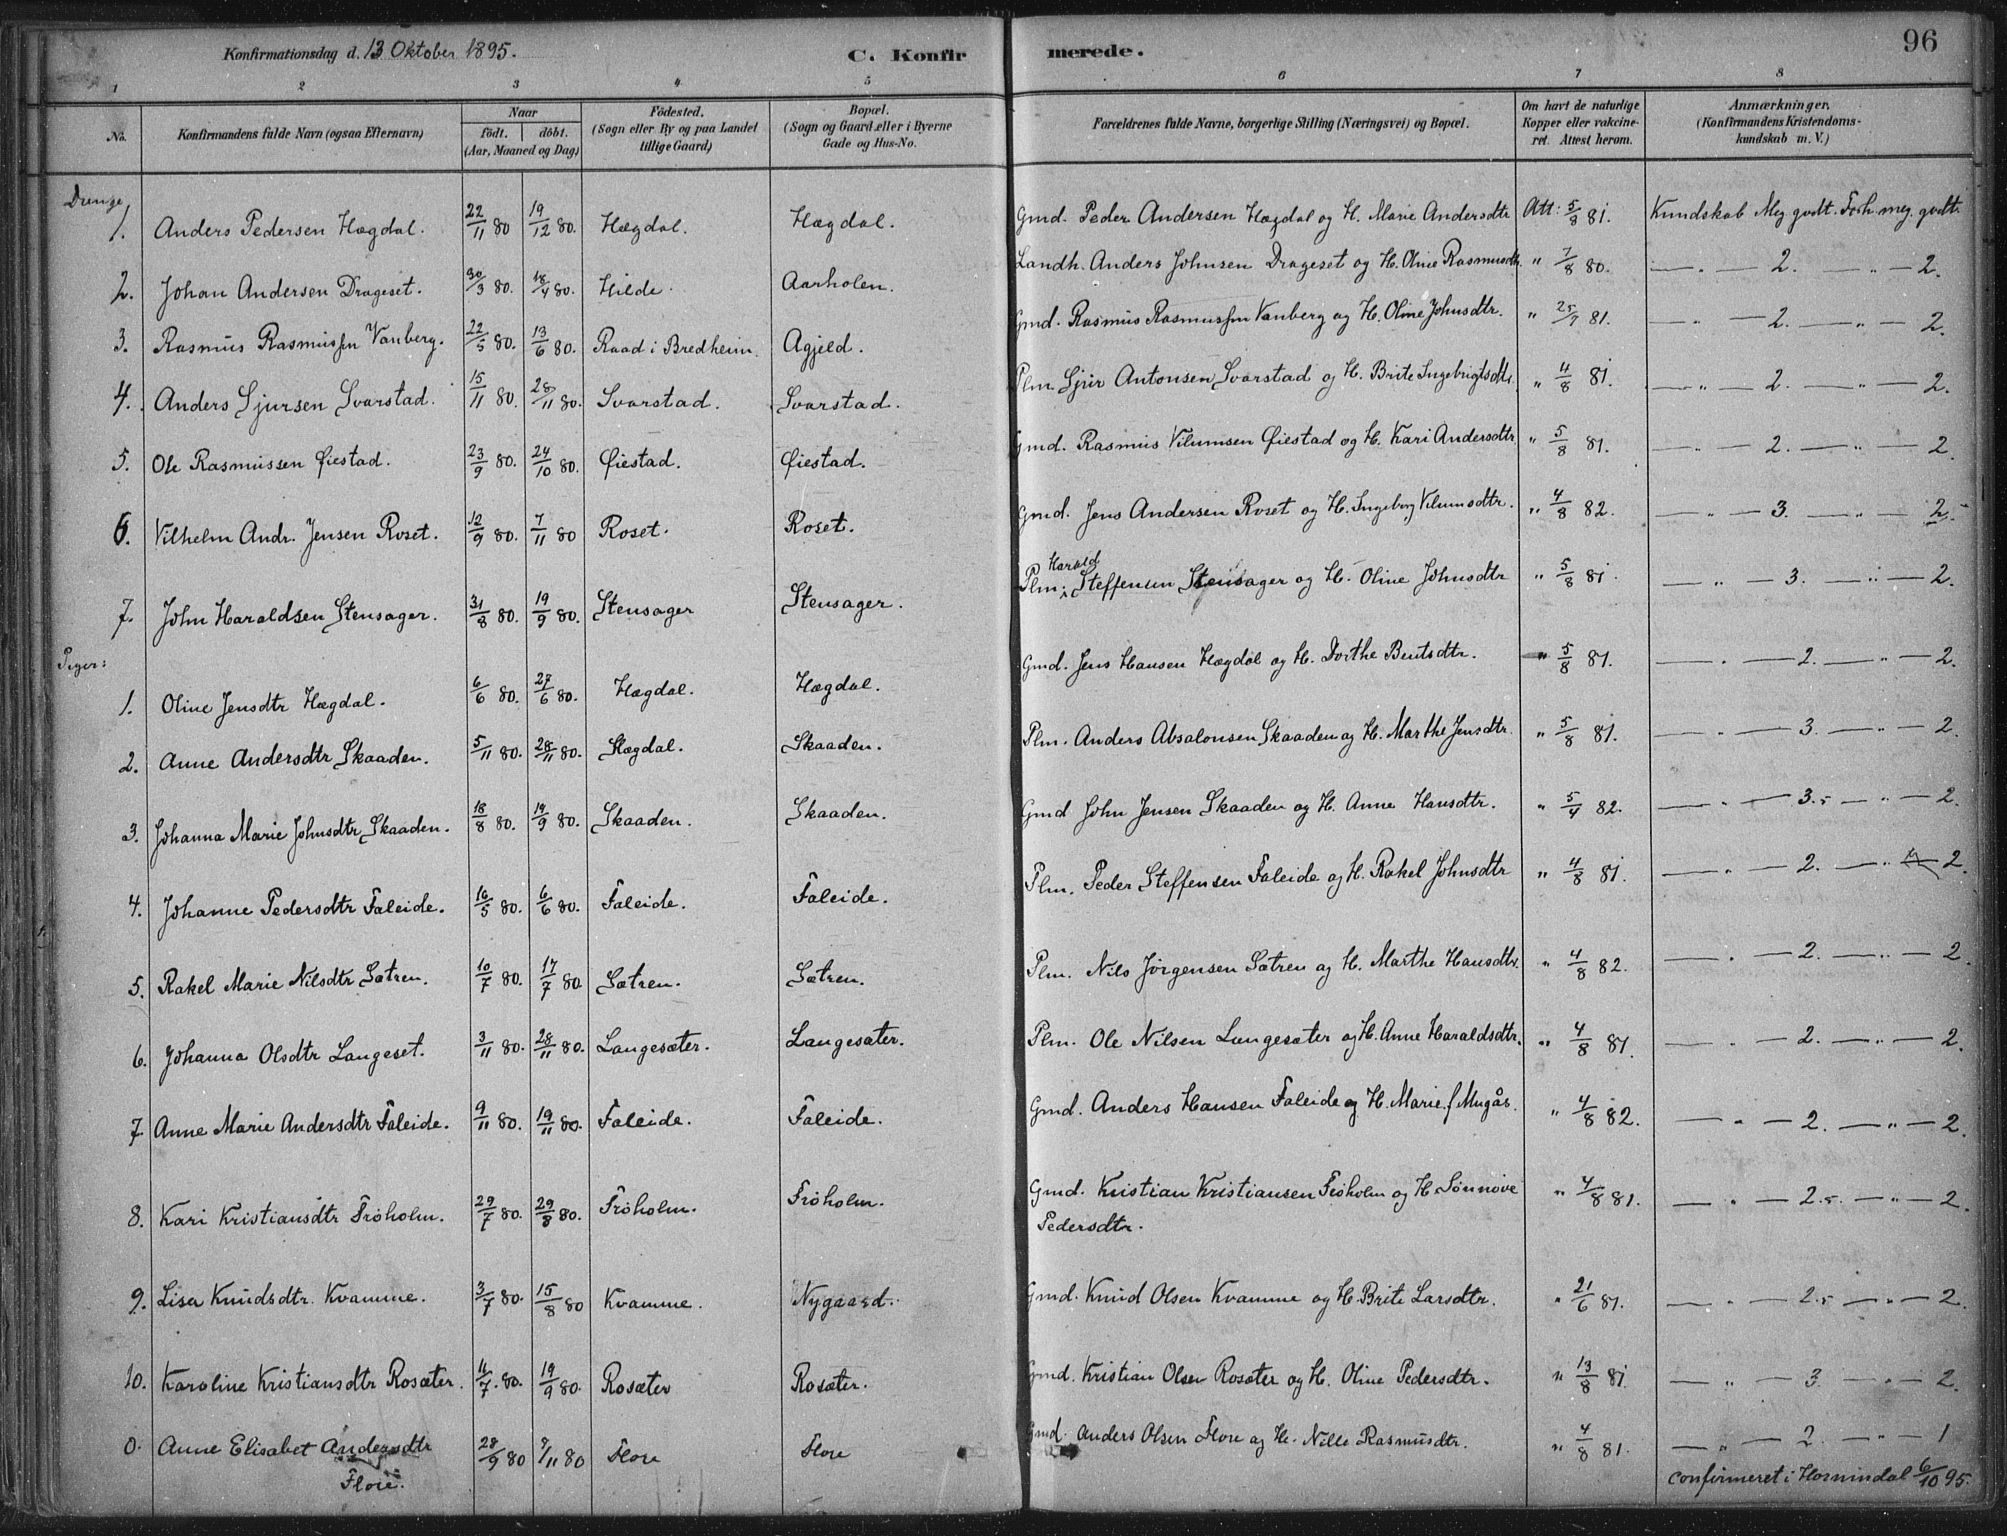 Konfirmationsdag d. 13 Oktober 1895.
C. Konfirmerede.
96
1 2 3 4 5 6 7 8
No.
Konfirmandens fulde Navn (ogsaa Efternavn)
Naar
födt. döbt.
(Aar, Maaned og Dag)
Födested.
(Sogn eller By og paa Landet
tillige Gaard)
Bopæl.
(Sogn og Gaard eller i Byerne
Gade og Hus-No.
Forældrenes fulde Navne, borgerlige Stilling (Næringsvei) og Bopæl.
Om havt de naturlige
Kopper eller vakcine-
ret. Attest herom.
Anmærkninger.
(Konfirmandens Kristendoms-
kundskab m. V.)
Drenge
1. Anders Pedersen Hægdal. 22/11 80 19/12 80. Hægdal. Hægdal. Gmd. Peder Andersen Hægdal og H. Marie Andersdtr Att: 5/8 81. Kundskab Meg godt. Forh. meg. godt.
2. Johan Andersen Drageset. 30/3 80. 18/4 80. Hilde. Aarholen. Landh. Anders Johnsen Drageset og H. Oline Rasmusdtr. " 7/8 80. — " — 2. — " — 2.
3. Rasmus Rasmussen Vanberg. 22/5 80. 13/6 80. Raad i Bredheim. Agjeld. Gmd. Rasmus Rasmussen Vanberg og H. Oline Johnsdtr. " 25/7 81. — " — 2. — " — 2.
4. Anders Sjursen Svarstad. 15/11 80. 28/11 80. Svarstad. Svarstad. Plm. Sjur Antonsen Svarstad og H. Brite Ingebrigtsdtr. " 4/8 81. — " — 2. — " — 2.
5. Ole Rasmussen Øiestad. 23/9 80. 24/10 80. Øiestad. Øiestad. Gmd. Rasmus Vilumsen Øiestad og H. Kari Andersdtr. " 5/8 81. — " — 2. — " — 2.
6. Vilhelm Andr. Jensen Roset. 12/9 80. 7/11 80 Roset. Roset. Gmd. Jens Andersen Roset og H. Ingeborg Vilumsdtr. " 4/8 82. — " — 3. — " — 2.
7. John Haraldsen Stensager. 31/8 80. 19/9 80. Stensager Stensager. Plm. Harald Steffensen Stensager og H. Oline Johnsdtr " 5/8 81. — " — 3. — " — 2.
Piger:
1. Oline Jensdtr Hægdal. 6/6 80. 27/6 80. Hægdal. Hægdal. Gmd. Jens Hansen Hægdal og H. Dorthe Bentsdtr. " 5/8 81. — " — 2. — " — 2.
2. Anne Andersdtr Skaaden. 5/11 80. 28/11 80. Hægdal. Skaaden. Plm. Anders Absalonsen Skaaden og H. Marthe Jensdtr. " 5/8 81. — " — 3. — " — 2.
3. Johanna Marie Johnsdtr Skaaden. 18/8 80. 19/9 80. Skaaden. Skaaden. Gmd John Jensen Skaaden og H. Anne Hansdtr. " 5/4 82. — " — 3.5 — " — 2.
4. Johanne Pedersdtr Faleide. 16/5 80. 6/6 80. Faleide. Faleide. Plm. Peder Steffensen Faleide og H. Rakel Johnsdtr " 4/8 81. — " — 2. — " — 2.
5. Rakel Marie Nilsdtr Sætren. 10/7 80. 17/7 80. Sætren. Sætren. Plm. Nils Jørgensen Sætren og H. Marthe Hansdtr. " 4/8 82. — " — 2. — " — 2.
6. Johanna Olsdtr Langeset. 3/11 80. 28/11 80. Langesæter. Langesæter. Plm. Ole Nilsen Langesæter og H. Anne Haraldsdtr. " 4/8 81. — " — 2. — " — 2.
7. Anne Marie Andersdtr Faleide. 9/11 80. 19/11 80. Faleide. Faleide. Gmd. Anders Hansen Faleide og H. Marie f. Mugås. " 4/8 82. — " — 2. — " — 2.
8. Kari Kristiansdtr Frøholm. 29/7 80. 29/8 80. Frøholm. Frøholm. Gmd. Kristian Kristiansen Frøholm og H. Sønnøve " 4/8 81. — " — 2.5 — " — 2.
Pedersdtr.
9. Lisa Knudsdtr. Kvamme. 3/7 80. 15/8 80 Kvamme. Nygaard. Gmd. Knud Olsen Kvamme og H. Brite Larsdtr. " 21/6 81. — " — 2.5 — " — 2.
10. Karoline Kristiansdtr Rosæter. 11/7. 80. 19/9 80. Rosæter Rosæter. Gmd. Kristian Olsen Rosæter og H. Oline Pedersdtr. " 13/8 81. — " — 3 — " — 2.
0. Anne Elisabet Andersdtr 28/9 80 7/11 80 Flore Flore Gmd. Anders Olsen Flore og H. Nille Rasmusdtr. " 4/8 81. — " — 2. — " — 1
Flore. confirmeret i Hornindal 6/10 95.